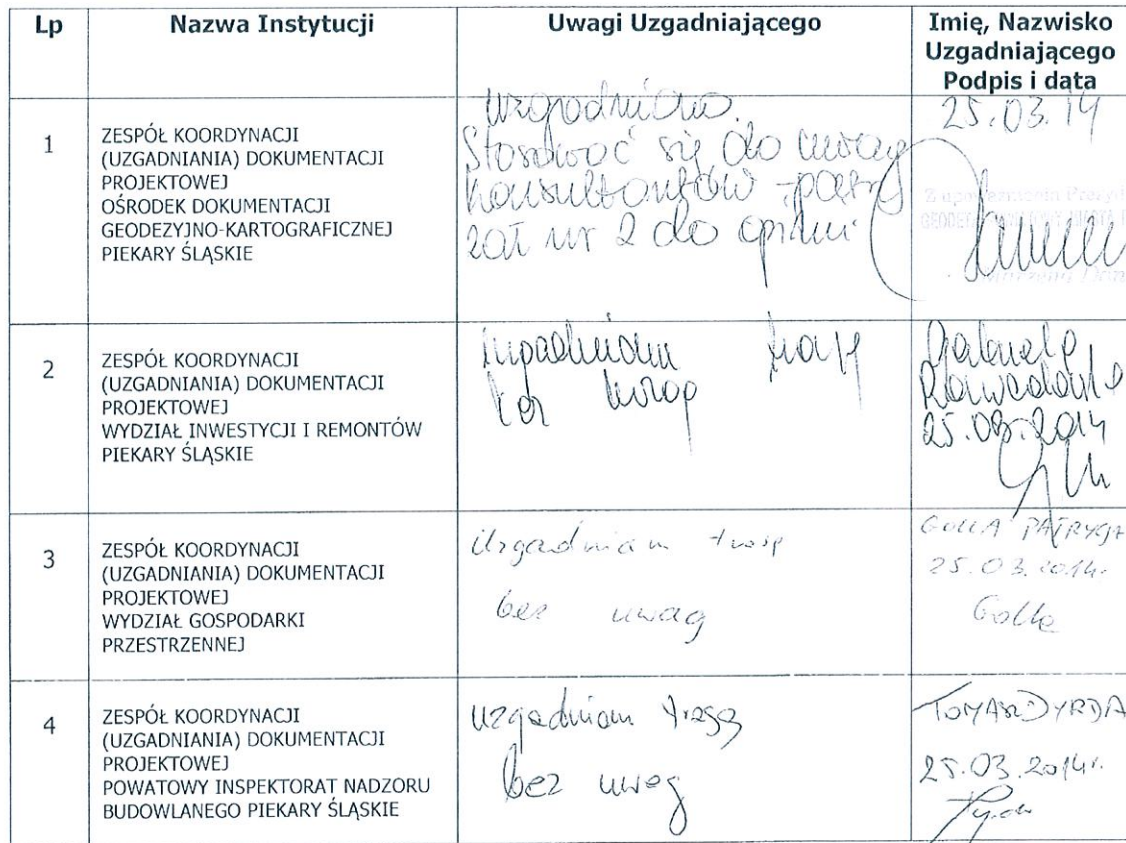 Lp Nazwa Instytucji Uwagi Uzgadniającego Imię, Nazwisko
Uzgadniającego
Podpis i data
1
ZESPÓŁ KOORDYNACJI
(UZGADNIANIA) DOKUMENTACJI
PROJEKTOWEJ
OŚRODEK DOKUMENTACJI
GEODEZYJNO-KARTOGRAFICZNEJ
PIEKARY ŚLĄSKIE
Uzgodniono.
Stosować się do uwag
konsultantów - patrz
zał nr 2 do opinii
25.03.14
Z upoważnienia Prezyd
2
ZESPÓŁ KOORDYNACJI
(UZGADNIANIA) DOKUMENTACJI
PROJEKTOWEJ
WYDZIAŁ INWESTYCJI I REMONTÓW
PIEKARY ŚLĄSKIE
Uzgadniam trasę
bez uwag
Gabriela
25.03.2014
3
ZESPÓŁ KOORDYNACJI
(UZGADNIANIA) DOKUMENTACJI
PROJEKTOWEJ
WYDZIAŁ GOSPODARKI
PRZESTRZENNEJ
Uzgadniam trasę
bez uwag
GOLLA PATRYCJA
25.03.2014r.
Golla
4
ZESPÓŁ KOORDYNACJI
(UZGADNIANIA) DOKUMENTACJI
PROJEKTOWEJ
POWATOWY INSPEKTORAT NADZORU
BUDOWLANEGO PIEKARY ŚLĄSKIE
Uzgadniam trasę
bez uwag
TOMASZ DYRDA
25.03.2014r.